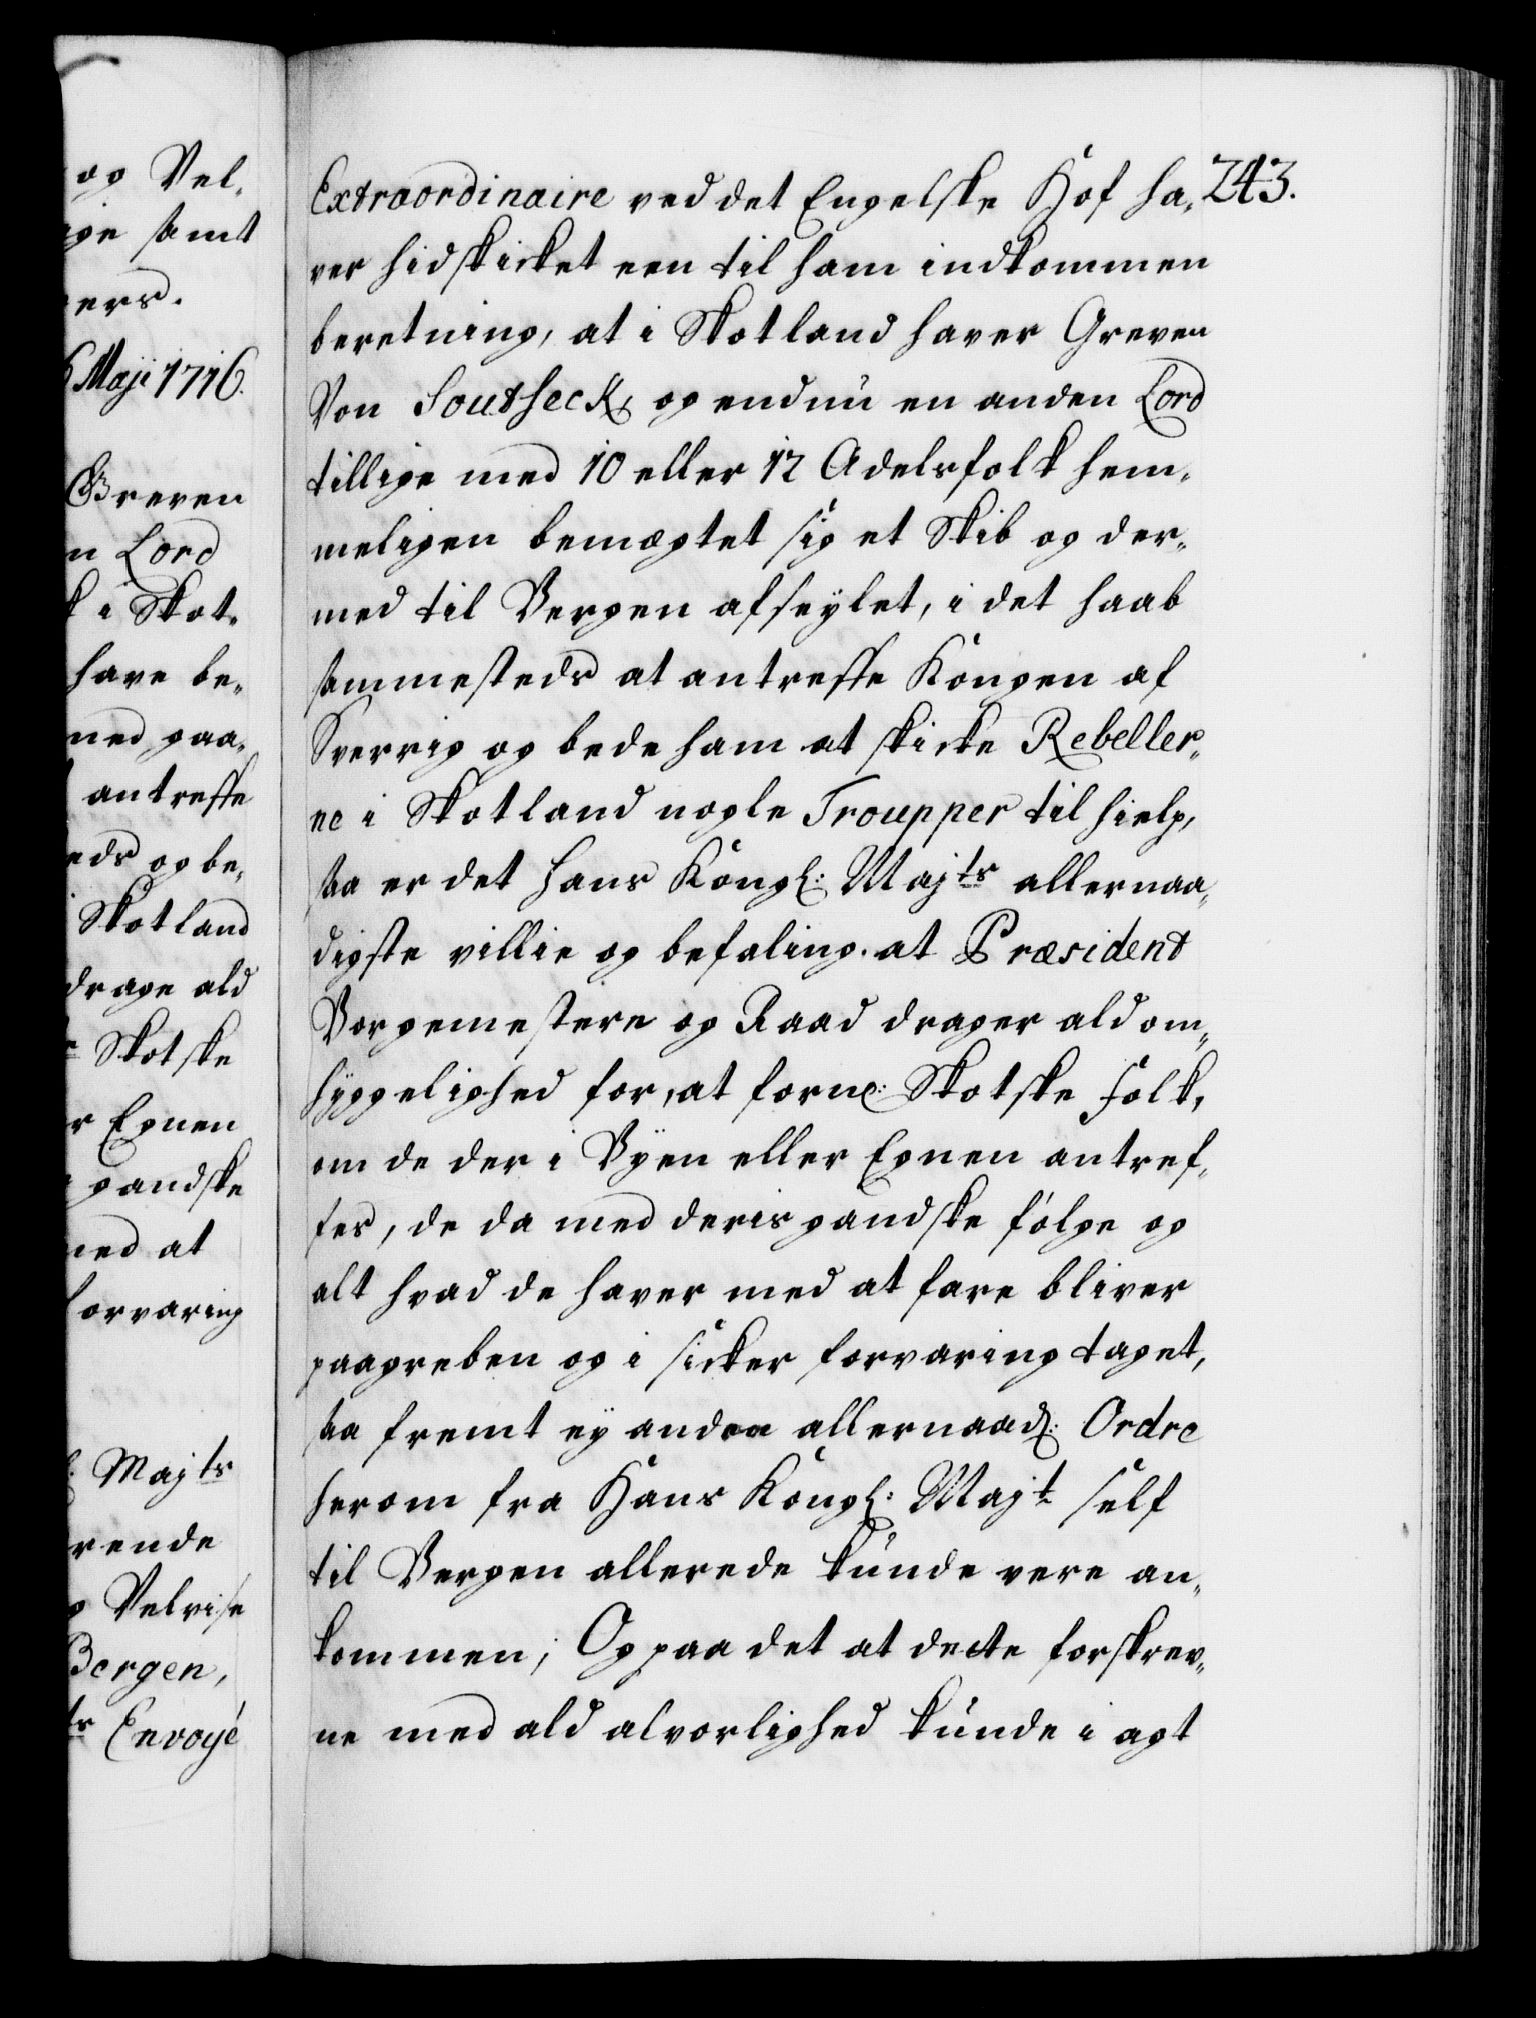 og Vel-
ige samt
ers.
6 Maji 1716.
Greven
n Lord
k i Skot-
have be-
med paa-
antreffe
eds og be-
Skotland
drage ald
Skotske
r Egnen
gandske
med at
forvaring
Majts
rende
Velvise
Bergen,
ts Envoyé
243.
Extraordinaire ved det Engelske Hof ha-
ver hidskicket een til ham indkommen
beretning, at i Skotland haver Greven
Von Southeck, og endnu en anden Lord
tillige med 10 eller 12 Adelsfolk hem-
meligen bemægtet sig et Skib og der-
med til Bergen afseylet, i det haab
sammesteds at antreffe Kongen af
Sverrig og bede ham at skicke Rebeller-
ne i Skotland nogle Troupper til hielp,
saa er det Hans Kongl: Majts allernaa-
digste villie og befaling. at Præsident
Borgemestere og Raad drager ald om-
hyggelighed for, at forne: Skotske Folk,
om de der i Byen eller Egnen antref-
fes, de da med deris gandske følge og
alt hvad de haver med at fare bliver
paagreben og i sicker forvaring taget,
saa fremt ey anden allernaad: Ordre
herom fra Hans Kongl: Majt self
til Bergen allerede kunde vere an-
kommen; Og paa det at dette forskrev-
ne med ald alvorlighed kunde i agt